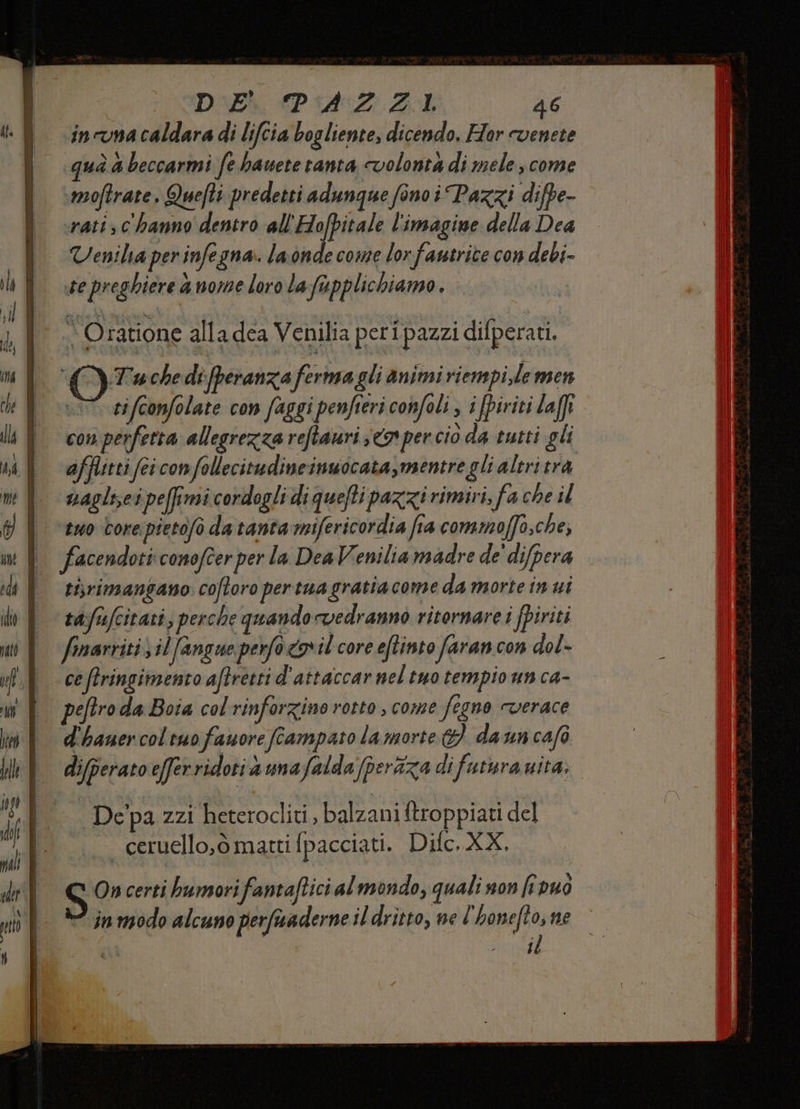 DE' PAZZI. 46
in vna caldara di liſcia bogliente, dicendo. Hor venete
quà à beccarmi ſe hauete tanta volontà di mele, come
moſtrate. Queſti predetti adunque ſono i Pazzi diſpe-
rati, c'hanno dentro all'Hoſpitale l'imagine della Dea
Venilia per inſegna. la onde come lor fautrice con debi-
te preghiere à nome loro la ſupplichiamo.
Oratione alla dea Venilia per i pazzi diſperati.
O Tu che di ſperanza ferma gli animi riempi, le men
ti ſconſolate con ſaggi penſieri conſoli, i ſpiriti laſſi
con perfetta allegrezza reſtauri, & per ciò da tutti gli
afflitti ſei con ſollecitudine inuocata, mentre gli altri tra
uagli, ei peſſimi cordogli di queſti pazzi rimiri, fa che il
tuo core pietoſo da tanta miſericordia ſia commoſſo, che,
facendoti conoſcer per la Dea Venilia madre de' diſpera
ti, rimangano coſtoro per tua gratia come da morte in ui
ta ſuſcitati, perche quando vedranno ritornare i ſpiriti
ſmarriti, il ſangue perſo & il core eſtinto faran con dol-
ce ſtringimento aſtretti d'attaccar nel tuo tempio un ca-
peſtro da Boia col rinforzino rotto, come ſegno verace
d'hauer col tuo fauore ſcampato la morte & da un caſo
diſperato eſſer ridoti à una falda ſperāza di futura uita.
De' pa zzi heterocliti, balzani ſtroppiati del
ceruello, ò matti ſpacciati. Diſc. XX.
SOn certi humori fantaſtici al mondo, quali non ſi può
in modo alcuno perſuaderne il dritto, ne l'honeſto, ne
il